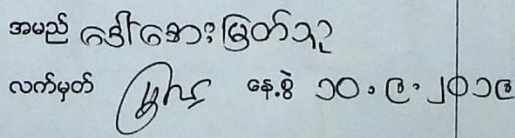 အမည် ဒေါ်အေးမြတ်သူ
လက်မှတ် နေ့စွဲ ၁၀.၉.၂၀၁၉